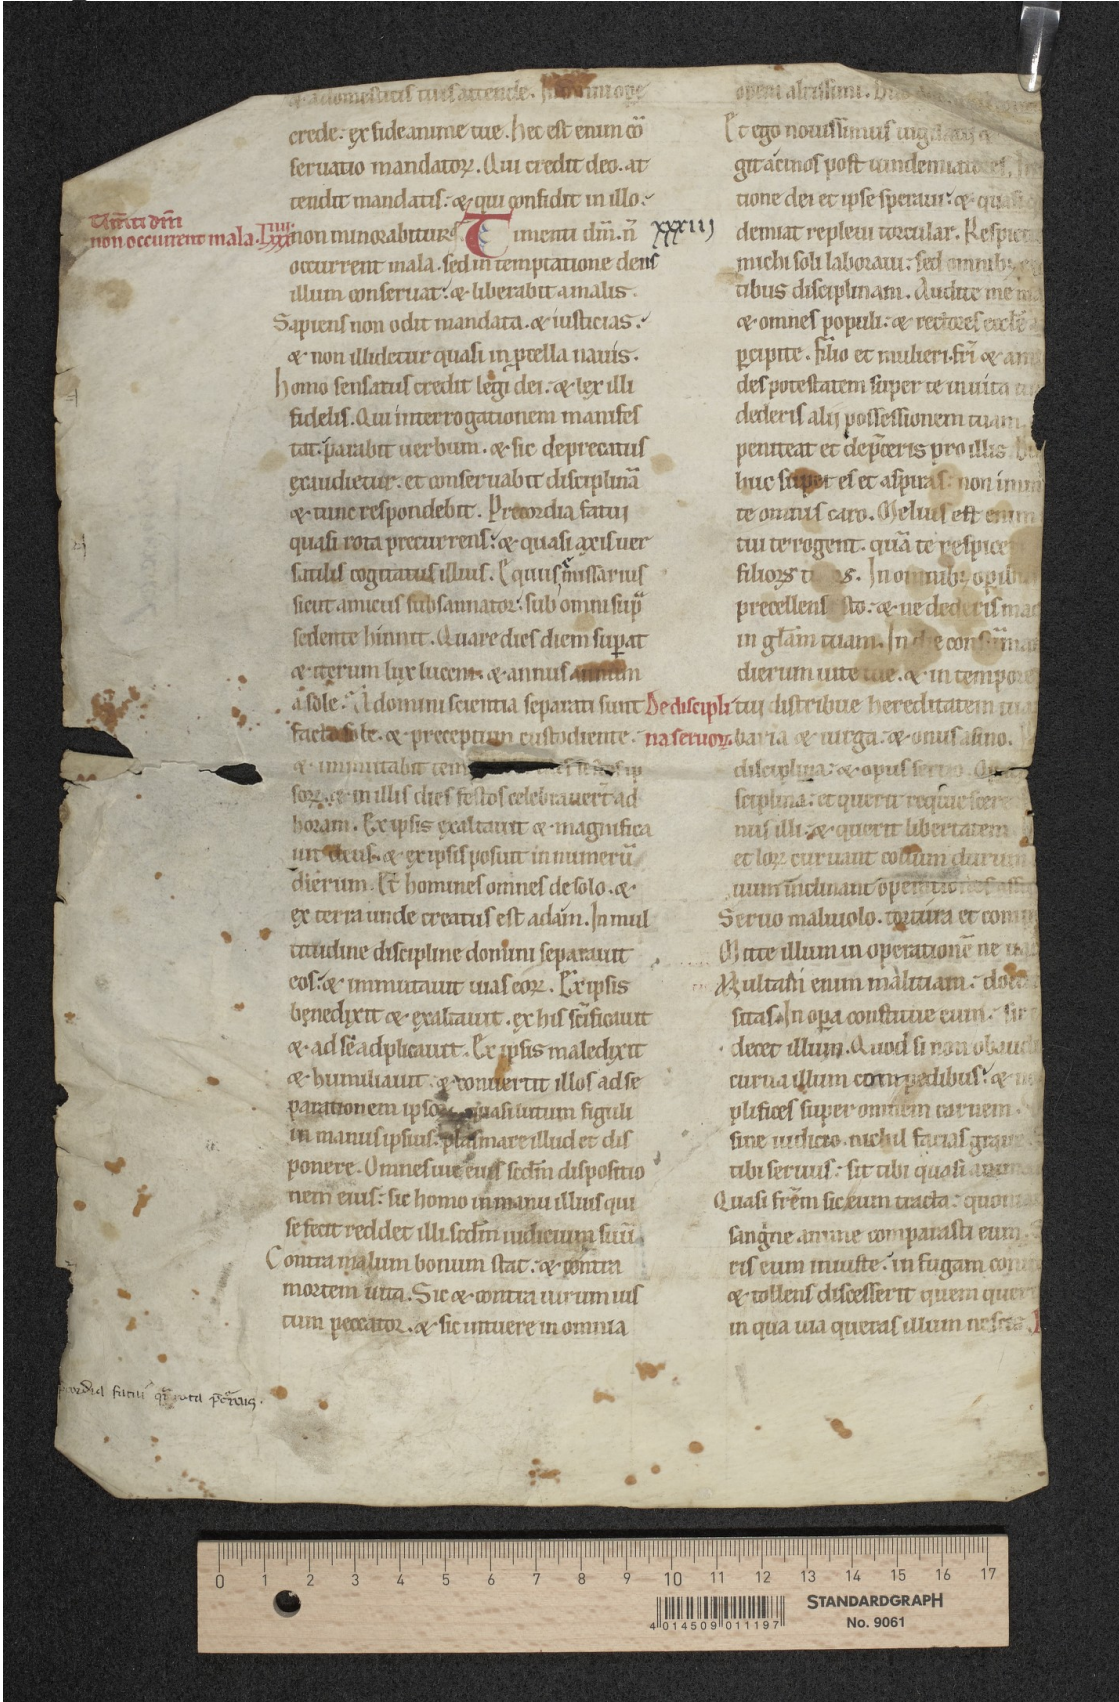 & a domesticis tuis attende. In omni ope
crede: ex fide anime tue. hec est enim cō
seruatio mandatoꝝ. Qui credit deo. at
tendit mandatis: & qui confidit in illo:
non minorabitur. Timenti dm̄. n̄
occurrent mala. sed in temptatione deus
illum conseruat: & liberabit a malis.
Sapiens non odit mandata. & iusticias:
& non illidetur quasi in ꝓcella nauis.
homo sensatus credit legi dei: & lex illi
fidelis. Qui interrogationem manifes
tat: parabit uerbum. & sic deprecatus
exaudietur. et conseruabit disciplinā
& tunc respondebit. Precordia fatui
quasi rota precurrens: & quasi axis uer
satilis cogitatus illius. Equus emissarius
sicut amicus subsannator: sub omni sup̄
sedente hinnit. Quare dies diem suꝑat
& iterum lux lucem & annus annum
a sole: A domini scientia separati sunt
facto sole. & preceptum custodiente.
& immutabit tem
soꝝ. & in illis dies festos celebrauert̄ ad
horam. Ex ipsis exaltauit & magnifica
uit deus. & ex ipsis posuit in numerū
dierum. Et homines omnes de solo. &
ex terra unde creatus est adam. In mul
titudine discipline domini separauit
eos: & immutauit uias eoꝝ. Ex ipsis
benedixit & exaltauit. ex his sc̄ificauit
& ad se adplicauit. Ex ipsis maledixit
& humiliauit. & conuertit illos a se
parationem ipsoꝝ. quasi lutum figuli
in manu ipsius: plasmare illud et dis
ponere. Omnes uie eius scdm̄ dispositio
nem eius: sic homo in manu illius qui
se fecit reddet illi scdm̄ iudicium suū.
Contra malum bonum stat: & contra
mortem uita. Sic & contra uirum ius
tum peccator. & sic intuere in omnia
Timenti dm̄
non occurrent mala.
xxxiij
De discipli
na seruoꝝ.
opera altissimi. Duo
Et ego nouissimus uigilaui &
git acinos post uindemiatores. In
tione dei et ipse speraui: & quasi q
demiat repleui torcular. Respicite
michi soli laboraui: sed omnibꝫ
tibus disciplinam. Audite me m
& omnes populi: & rectores eccle
ꝑcipite. filio et mulieri. fri & am
des potestatem super te in uita tu
dederis alij possessionem tuam
peniteat et depceris pro illis. Du
huc superes et aspiras: non imm
te omnis caro. Melius est enim
tui te rogent. quā te respice
filioꝝ tuoꝝ. In omnibꝫ opibus
precellens esto: & ne dederis mac
in glam tuam. In die consūma
dierum uite tue. & in tempore
tui distribue hereditatem tua
baria & uirga: & onus asino.
disciplina: & opus seruo. Opa
sciplina: et querit requiescere
nus illi: & querit libertatem
et loꝝ curuant collum durum
uum inclinant operationes assi
Seruo maliuolo. tortura et comp
Mitte illum in operationē ne ua
Multam enim malitiam: docu
sitas. In oꝑa constitue eum: sic
decet illum. Quod si non obaudi
curua illum compedibus: & n
plifices super omnem carnem.
sine iudicio. nichil facias graue.
tibi seruus: sit tibi quasi anima
Quasi frem sic eum tracta: quoni
sanguine anime comparasti eum.
ris eum iniuste: in fugam conu
& tollens discesserit quem quer
in qua uia queras illum nescis.
cordia fatui qͣ rota p̄currens.
0 1 2 3 4 5 6 7 8 9 10 11 12 13 14 15 16 17
4 014509 011197
STANDARDGRAPH
No. 9061